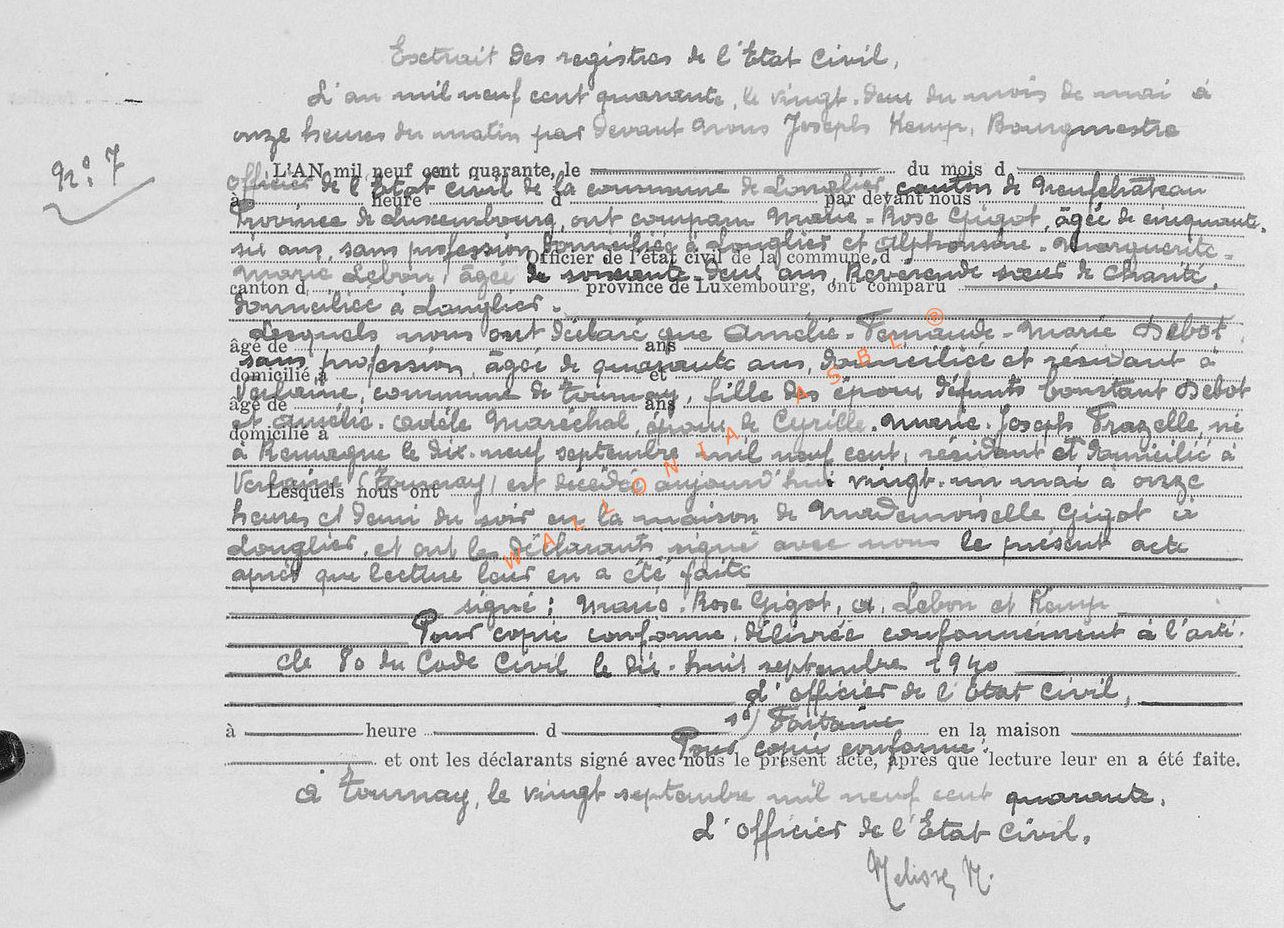 Extrait des registres de l'Etat Civil,
L'an mil neuf cent quarante, le vingt-deux du mois de mai à
onze heures du matin par devant Nous Joseph Kemp, Bourgmestre
N° 7
L'AN mil neuf cent quarante, le du mois d
officier de l'Etat civil de la commune de Longlier, canton de Neufchâteau
à heure d par devant nous
Province de Luxembourg, ont comparu Marie-Rose Gigot, âgée de cinquante-
six ans, sans profession, domiciliée à Longlier et Alphonsine-Marguerite-
Officier de l'état civil de la commune d
Marie Lebon, âgée de soixante-deux ans, Révérende sœur de Charité,
canton d province de Luxembourg, ont comparu
domiciliée à Longlier.
Lesquels nous ont déclaré que Amélie-Fernande-Marie Debot,
âgé de ans
sans profession, âgée de quarante ans, domiciliée et résidant à
domicilié à et
Verlaine, commune de Tournay, fille des époux défunts Constant Debot
âgé de ans
et Amélie-Adèle Maréchal, épouse de Cyrille-Marie-Joseph Frazelle, né
domicilié à
à Remagne le dix-neuf septembre mil neuf cent, résidant et domicilié à
Verlaine (Tournay) est décédée aujourd'hui vingt-un mai à onze
Lesquels nous ont
heures et demi du soir en la maison de Mademoiselle Gigot à
Longlier, et ont les déclarants signé avec nous le présent acte
après que lecture leur en a été faite
signé : Marie-Rose Gigot, A. Lebon et Kemp
Pour copie conforme, délivrée conformément à l'arti-
cle 80 du Code Civil le dix-huit septembre 1940
L'officier de l'Etat Civil,
sé) Fontaine
à heure d en la maison
Pour copie conforme :
et ont les déclarants signé avec nous le présent acte, après que lecture leur en a été faite.
à Tournay, le vingt septembre mil neuf cent quarante.
L'officier de l'Etat Civil,
Melisse, N.
WALLONIA ASBL ®